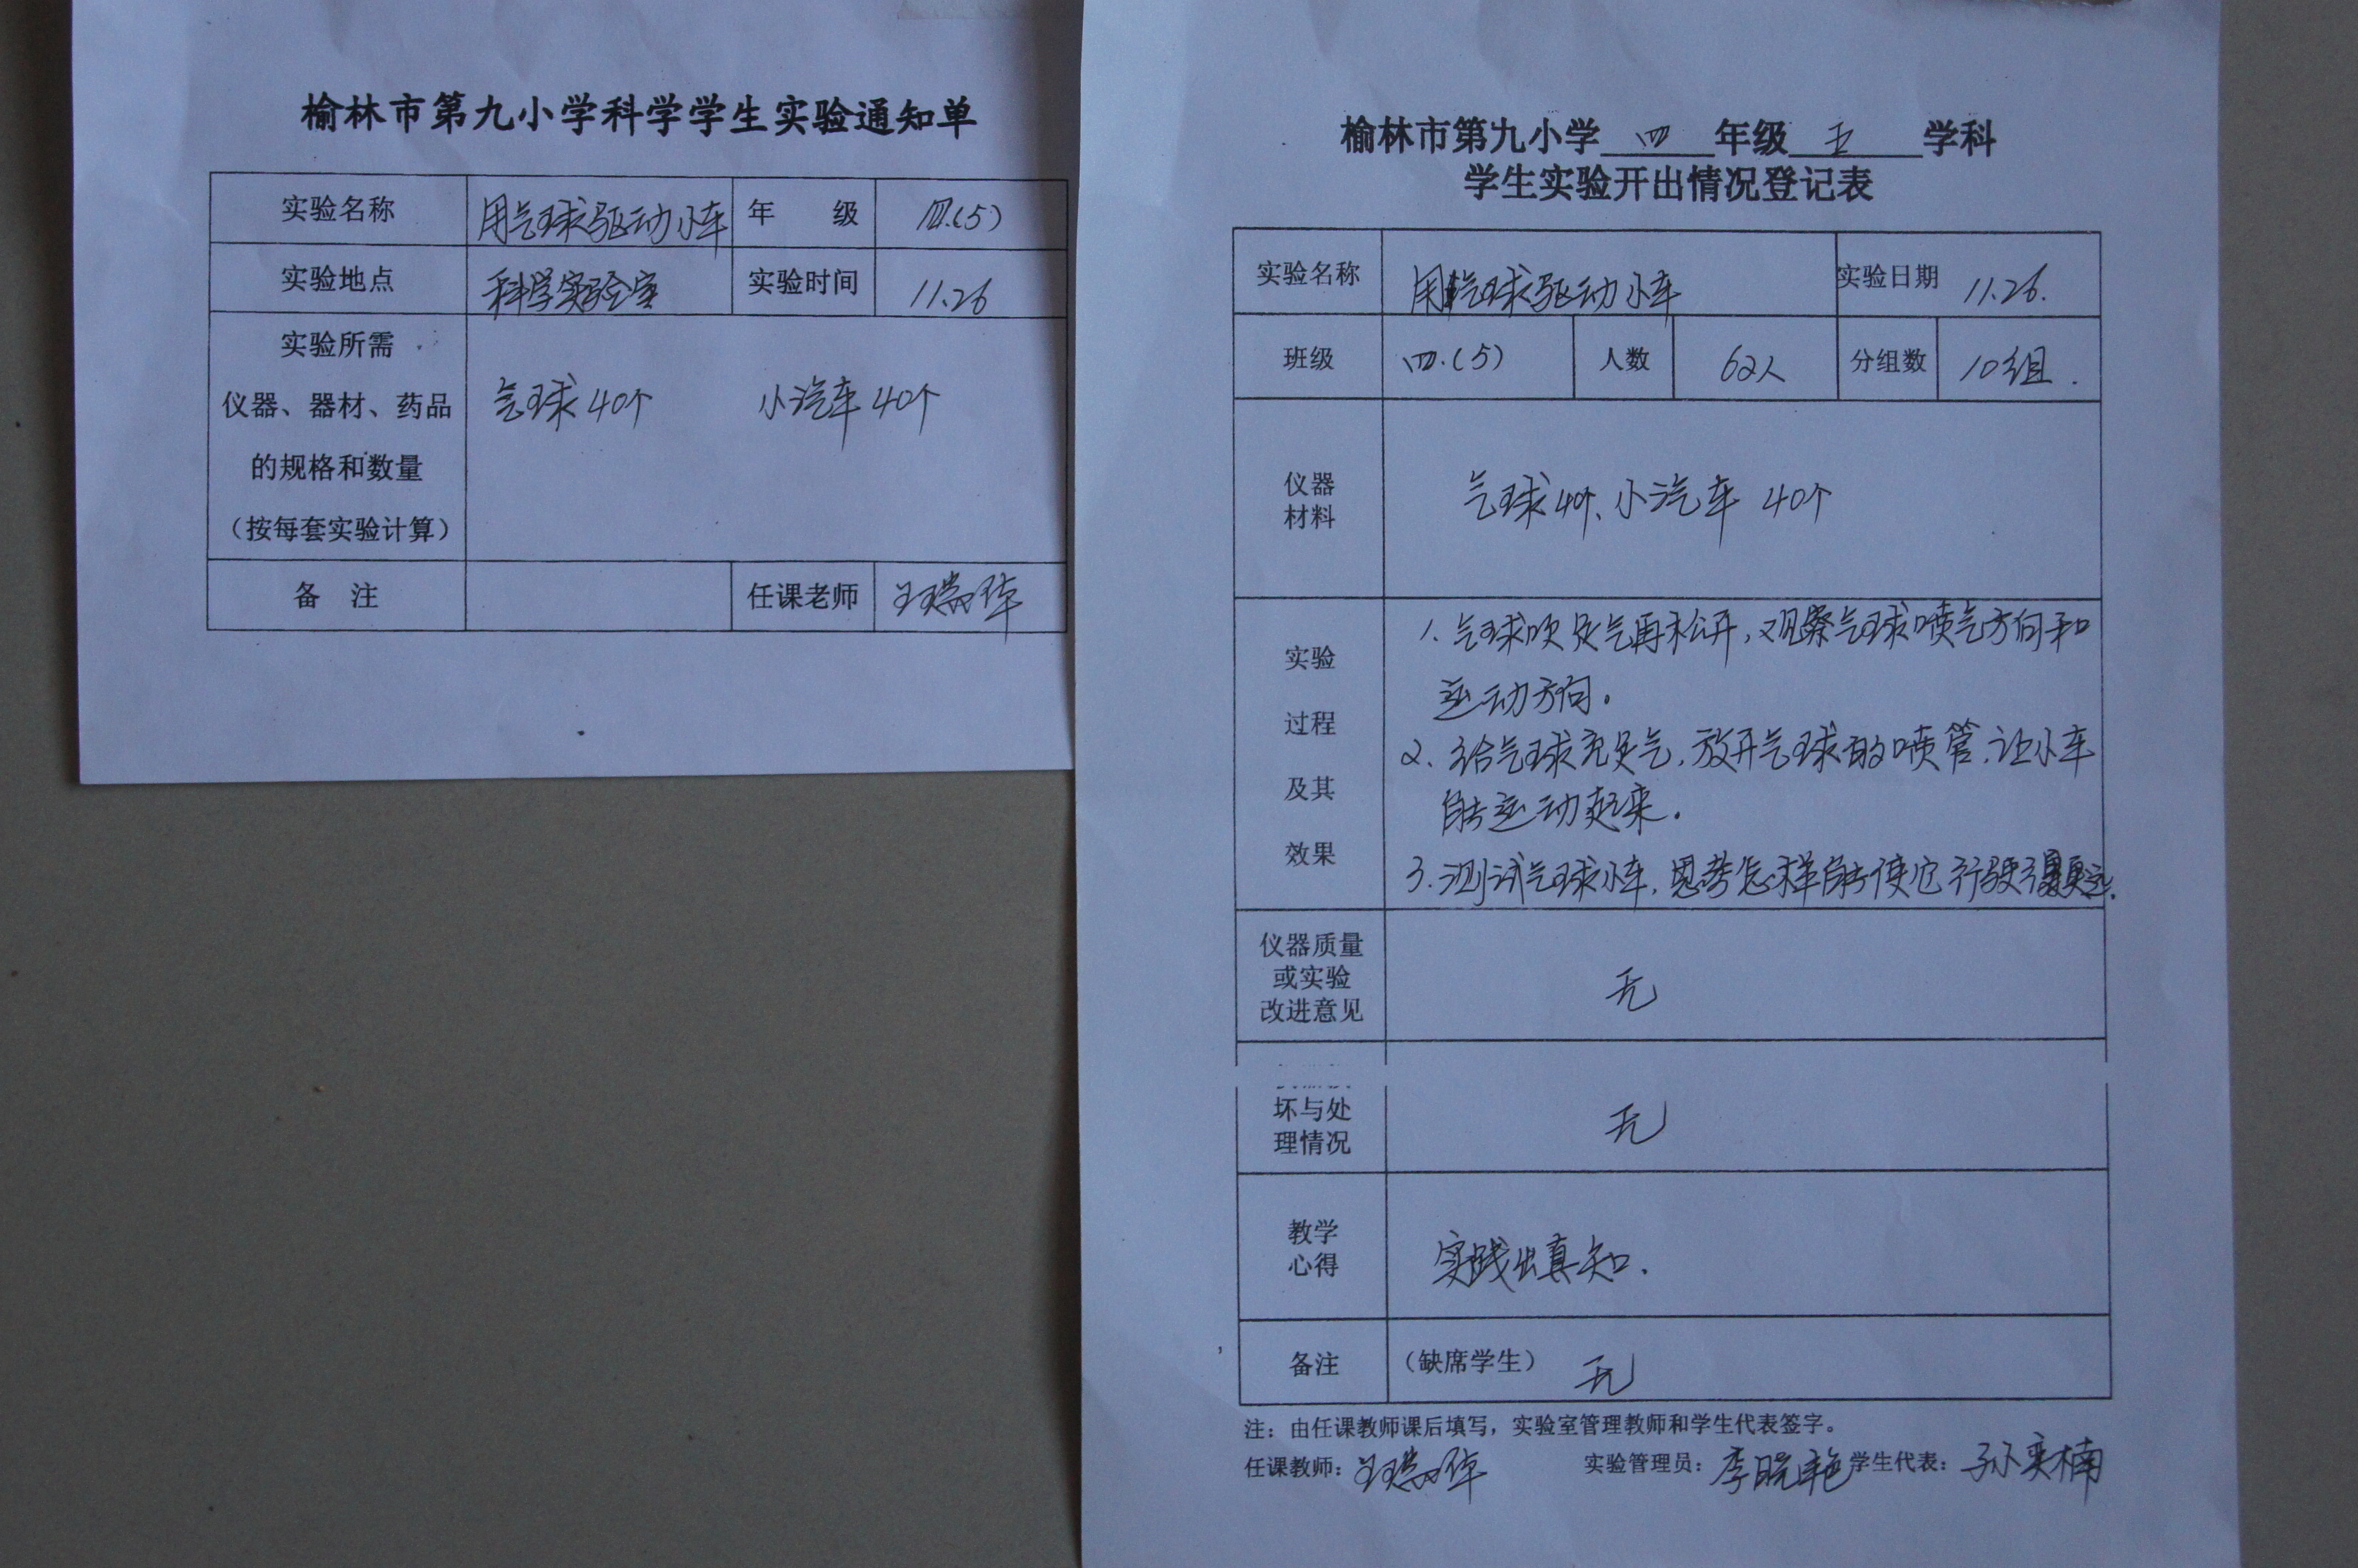 榆林市第九小学科学学生实验通知单
实验名称 用气球驱动小车 年 级 四.(5)
实验地点 科学实验室 实验时间 11.26
实验所需
仪器、器材、药品 气球40个 小汽车40个
的规格和数量
（按每套实验计算）
备 注 任课老师 王瑞
榆林市第九小学 四 年级 五 学科
学生实验开出情况登记表
实验名称 用气球驱动小车 实验日期 11.26.
班级 四.(5) 人数 62人 分组数 10组.
仪器
材料
气球40个、小汽车 40个
实验
过程
及其
效果
1. 气球吹足气再松开,观察气球喷气方向和
运动方向。
2. 给气球充足气,放开气球的喷管,让小车
能运动起来。
3. 测试气球小车,思考怎样能使它行驶得更远.
仪器质量
或实验
改进意见
无
坏与处
理情况
无
教学
心得
实践出真知.
备注 （缺席学生） 无
注：由任课教师课后填写，实验室管理教师和学生代表签字。
任课教师: 王瑞 实验管理员: 李晓艳 学生代表: 孙奕楠